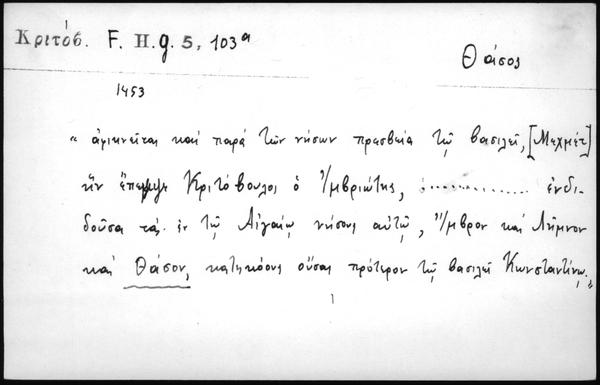 Κριτόβ. F. H. g. 5, 103ª
Θάσος
1453
" ἀφικνεῖται καὶ παρὰ τῶν νήσων πρεσβεία τῷ βασιλεῖ, [Μεχμέτ]
ἣν ἔπεμψε Κριτόβουλος ὁ Ἴμβριώτης, ὁ.............. ἐνδι-
δοῦσα τὰς ἐν τῷ Αἰγαίῳ νήσους αὐτῷ, Ἴμβρον καὶ Λῆμνον
καὶ Θάσον, κατηκόους οὔσας πρότερον τῷ βασιλεῖ Κωνσταντίνῳ. "